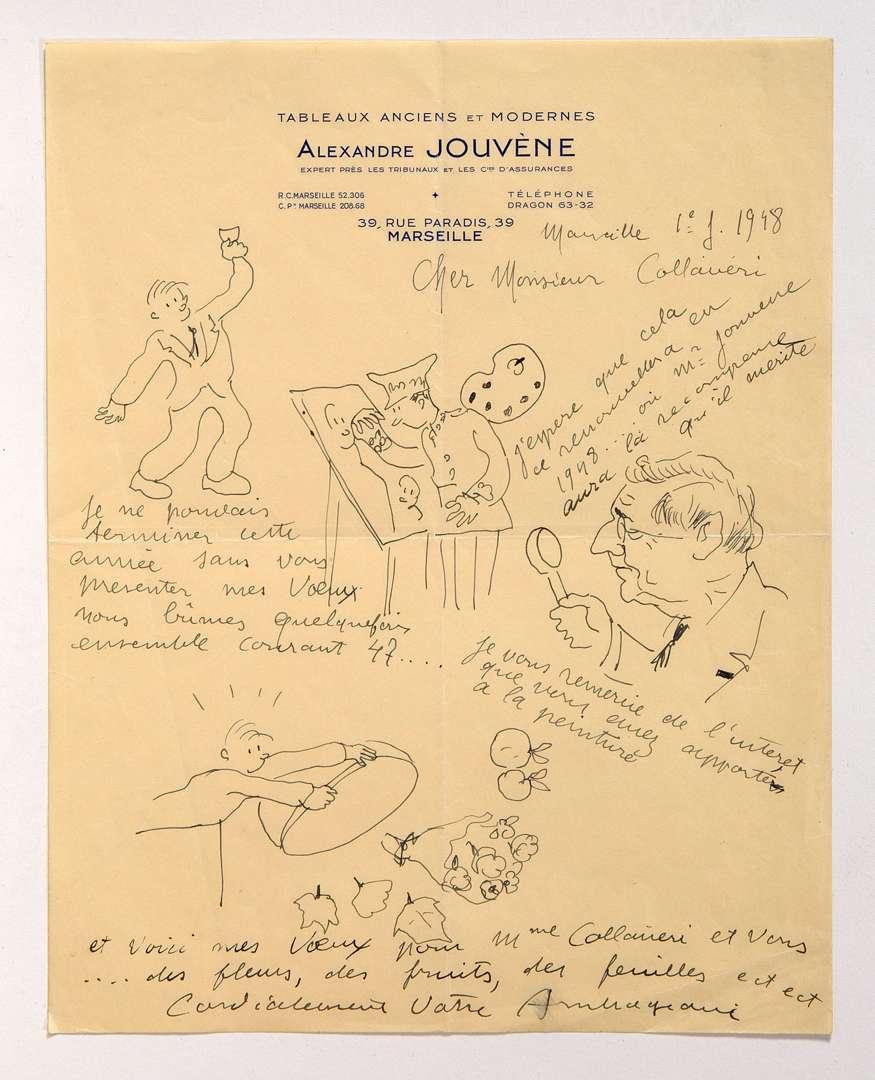 TABLEAUX ANCIENS ET MODERNES
ALEXANDRE JOUVÈNE
EXPERT PRÈS LES TRIBUNAUX ET LES CIES D'ASSURANCES
R.C. MARSEILLE 52.306
C.P. MARSEILLE 208.68
TÉLÉPHONE
DRAGON 63-32
39, RUE PARADIS, 39
MARSEILLE
Marseille 1e j. 1948
Cher Monsieur Collavéri
Je ne pouvais
terminer cette
année sans vous
présenter mes Vœux
nous bûmes quelquefois
ensemble courant 47....
j'espère que cela
ce renouvellera en
1948... où Mr Jouvene
aura la recompense
qu'il merite
Je vous remercie de l'interet
que vous avez apporté
a la peinture
et voici mes Vœux pour Mme Collaveri et Vous
.... des fleurs, des fruits, des feuilles ect ect
Cordialement Votre Ambrogiani